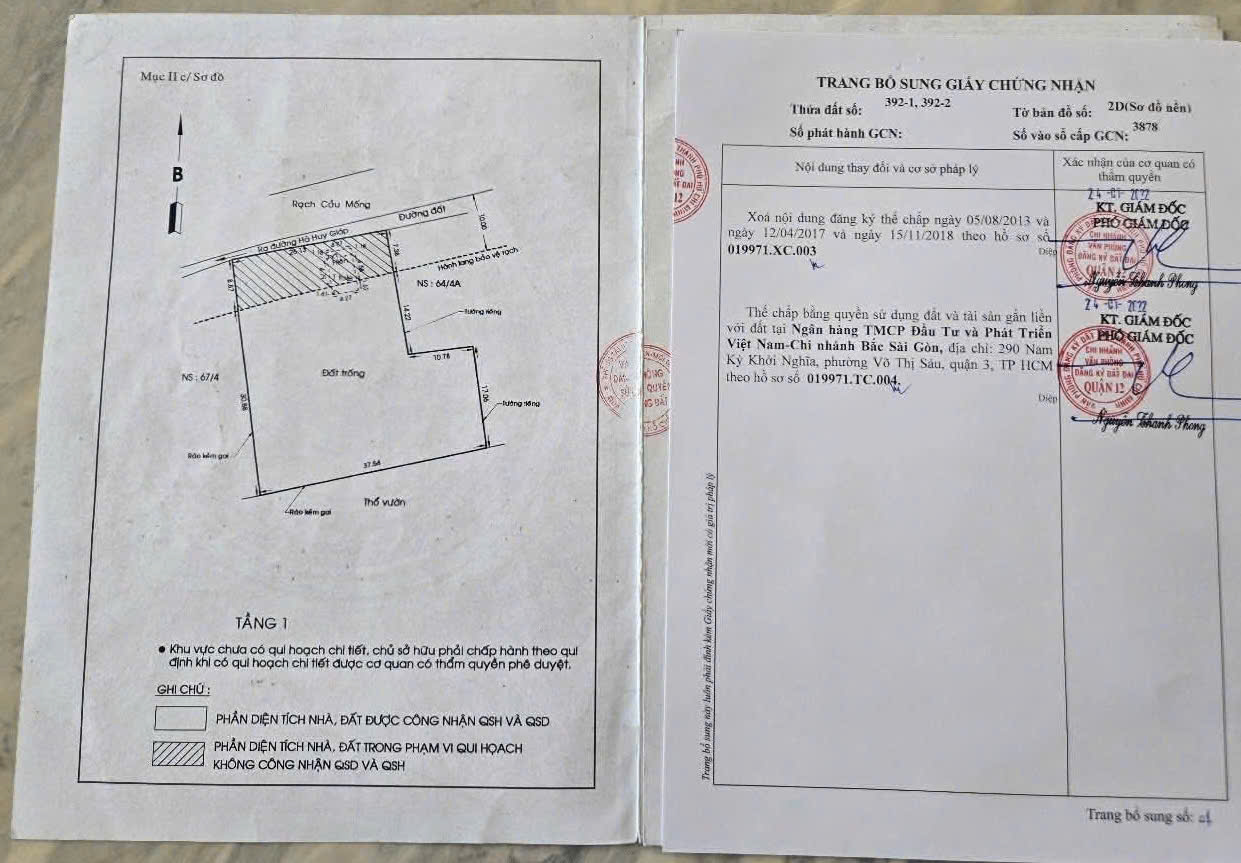 Mục II c/ Sơ đồ
B
Rạch Cầu Mống
Đường đất
Ra đường Hà Huy Giáp
10.00
26.13
7.36
Hành lang bảo vệ rạch
8.67
4.27
NS : 64/4A
14.22
Tường riêng
10.78
Đất trống
NS : 67/4
30.88
17.06
Tường riêng
Rào kẽm gai
37.54
Thổ vườn
Rào kẽm gai
TẦNG 1
● Khu vực chưa có qui hoạch chi tiết, chủ sở hữu phải chấp hành theo qui
định khi có qui hoạch chi tiết được cơ quan có thẩm quyền phê duyệt.
GHI CHÚ :
PHẦN DIỆN TÍCH NHÀ, ĐẤT ĐƯỢC CÔNG NHẬN QSH VÀ QSD
PHẦN DIỆN TÍCH NHÀ, ĐẤT TRONG PHẠM VI QUI HOẠCH
KHÔNG CÔNG NHẬN QSD VÀ QSH
TRANG BỔ SUNG GIẤY CHỨNG NHẬN
Thửa đất số: 392-1, 392-2
Tờ bản đồ số: 2D(Sơ đồ nền)
Số phát hành GCN:
Số vào sổ cấp GCN: 3878
Nội dung thay đổi và cơ sở pháp lý
Xác nhận của cơ quan có
thẩm quyền
Xoá nội dung đăng ký thế chấp ngày 05/08/2013 và
ngày 12/04/2017 và ngày 15/11/2018 theo hồ sơ số
019971.XC.003
Diệp
24 -01- 2022
KT. GIÁM ĐỐC
PHÓ GIÁM ĐỐC
CHI NHÁNH
VĂN PHÒNG
ĐĂNG KÝ ĐẤT ĐAI
QUẬN 12
Nguyễn Thanh Phong
Thế chấp bằng quyền sử dụng đất và tài sản gắn liền
với đất tại Ngân hàng TMCP Đầu Tư và Phát Triển
Việt Nam-Chi nhánh Bắc Sài Gòn, địa chỉ: 290 Nam
Kỳ Khởi Nghĩa, phường Võ Thị Sáu, quận 3, TP HCM
theo hồ sơ số 019971.TC.004.
Diệp
24 -01- 2022
KT. GIÁM ĐỐC
PHÓ GIÁM ĐỐC
CHI NHÁNH
VĂN PHÒNG
ĐĂNG KÝ ĐẤT ĐAI
QUẬN 12
Nguyễn Thanh Phong
Trang bổ sung này luôn phải đính kèm Giấy chứng nhận mới có giá trị pháp lý
Trang bổ sung số: